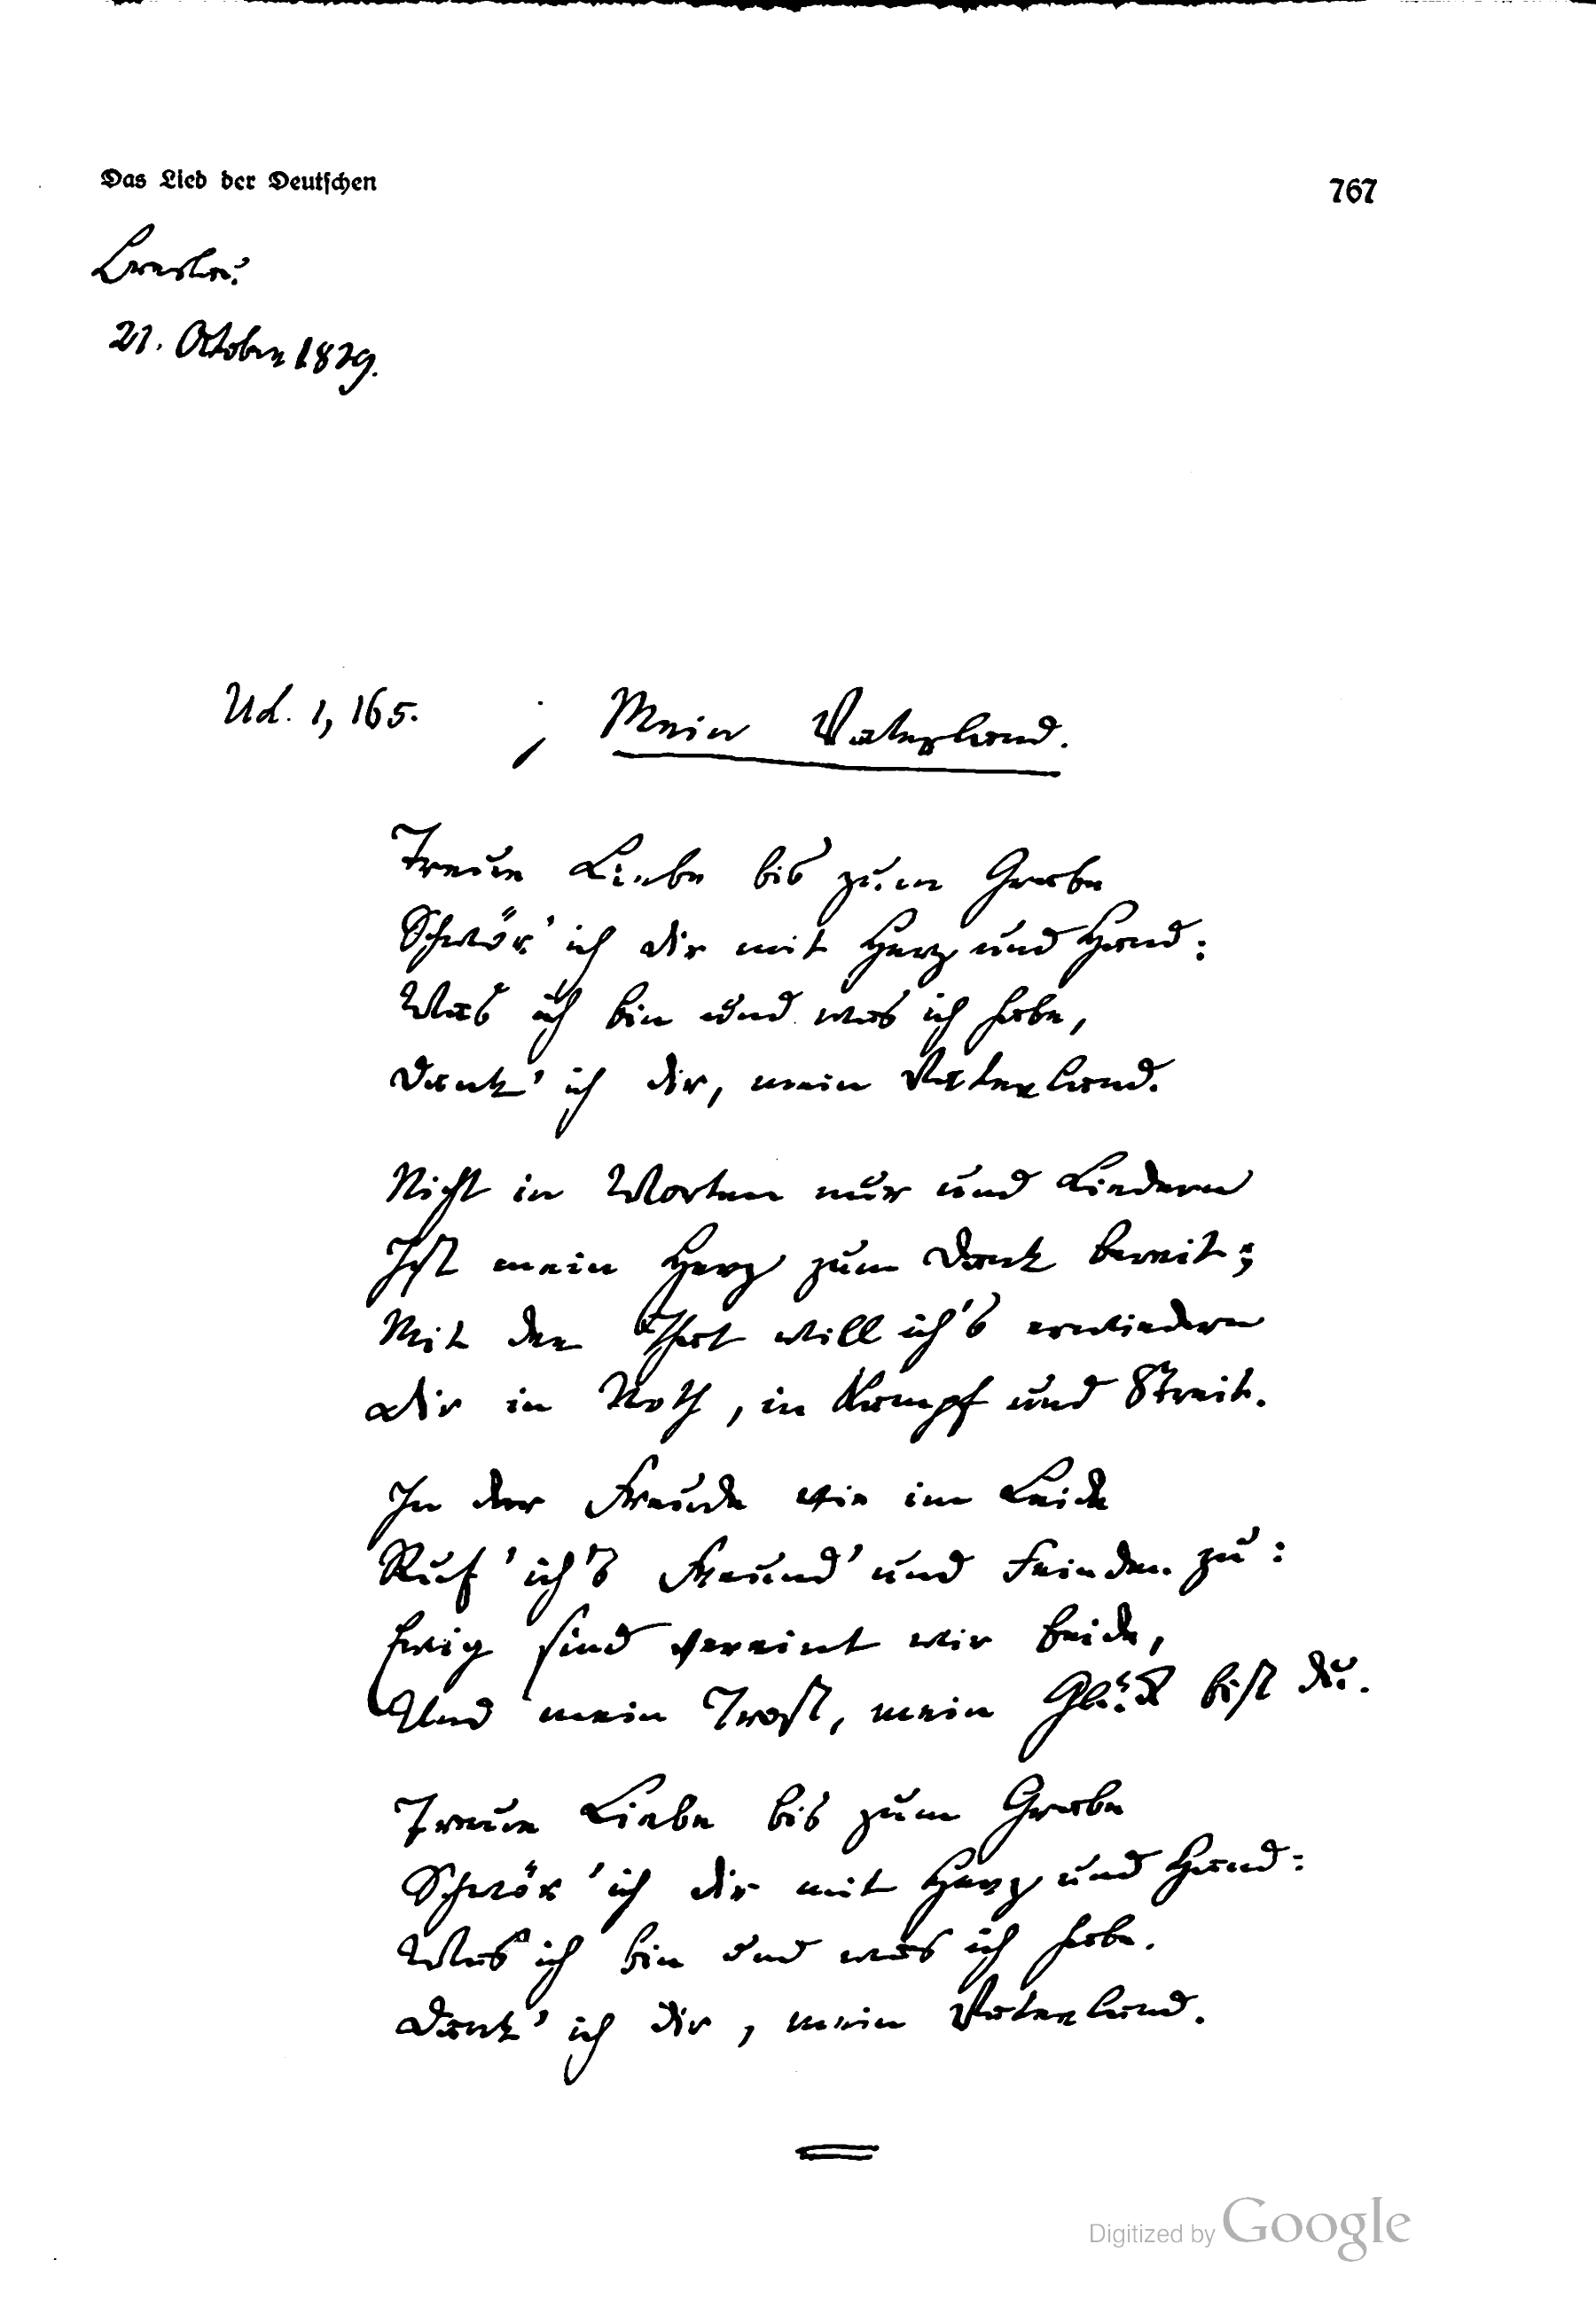 Das Lied der Deutschen
767
Breslau
21. October 1829.
Ud. 1, 165.
Mein Vaterland.
Treue Liebe bis zum Grabe
Schwör' ich dir mit Herz und Hand:
Was ich bin und was ich habe,
Dank' ich dir, mein Vaterland.
Nicht in Worten nur und Liedern
Ist mein Herz zum Dank bereit;
Mit der That will ich's erwiedern
Dir in Noth, in Kampf und Streit.
In der Freude wie im Leide
Ruf' ich's Freund' und Feinden zu:
Ewig sind vereint wir beide,
Und mein Trost, mein Glück bist du.
Treue Liebe bis zum Grabe
Schwör' ich dir mit Herz und Hand:
Was ich bin und was ich habe.
Dank' ich dir, mein Vaterland.
Digitized by Google